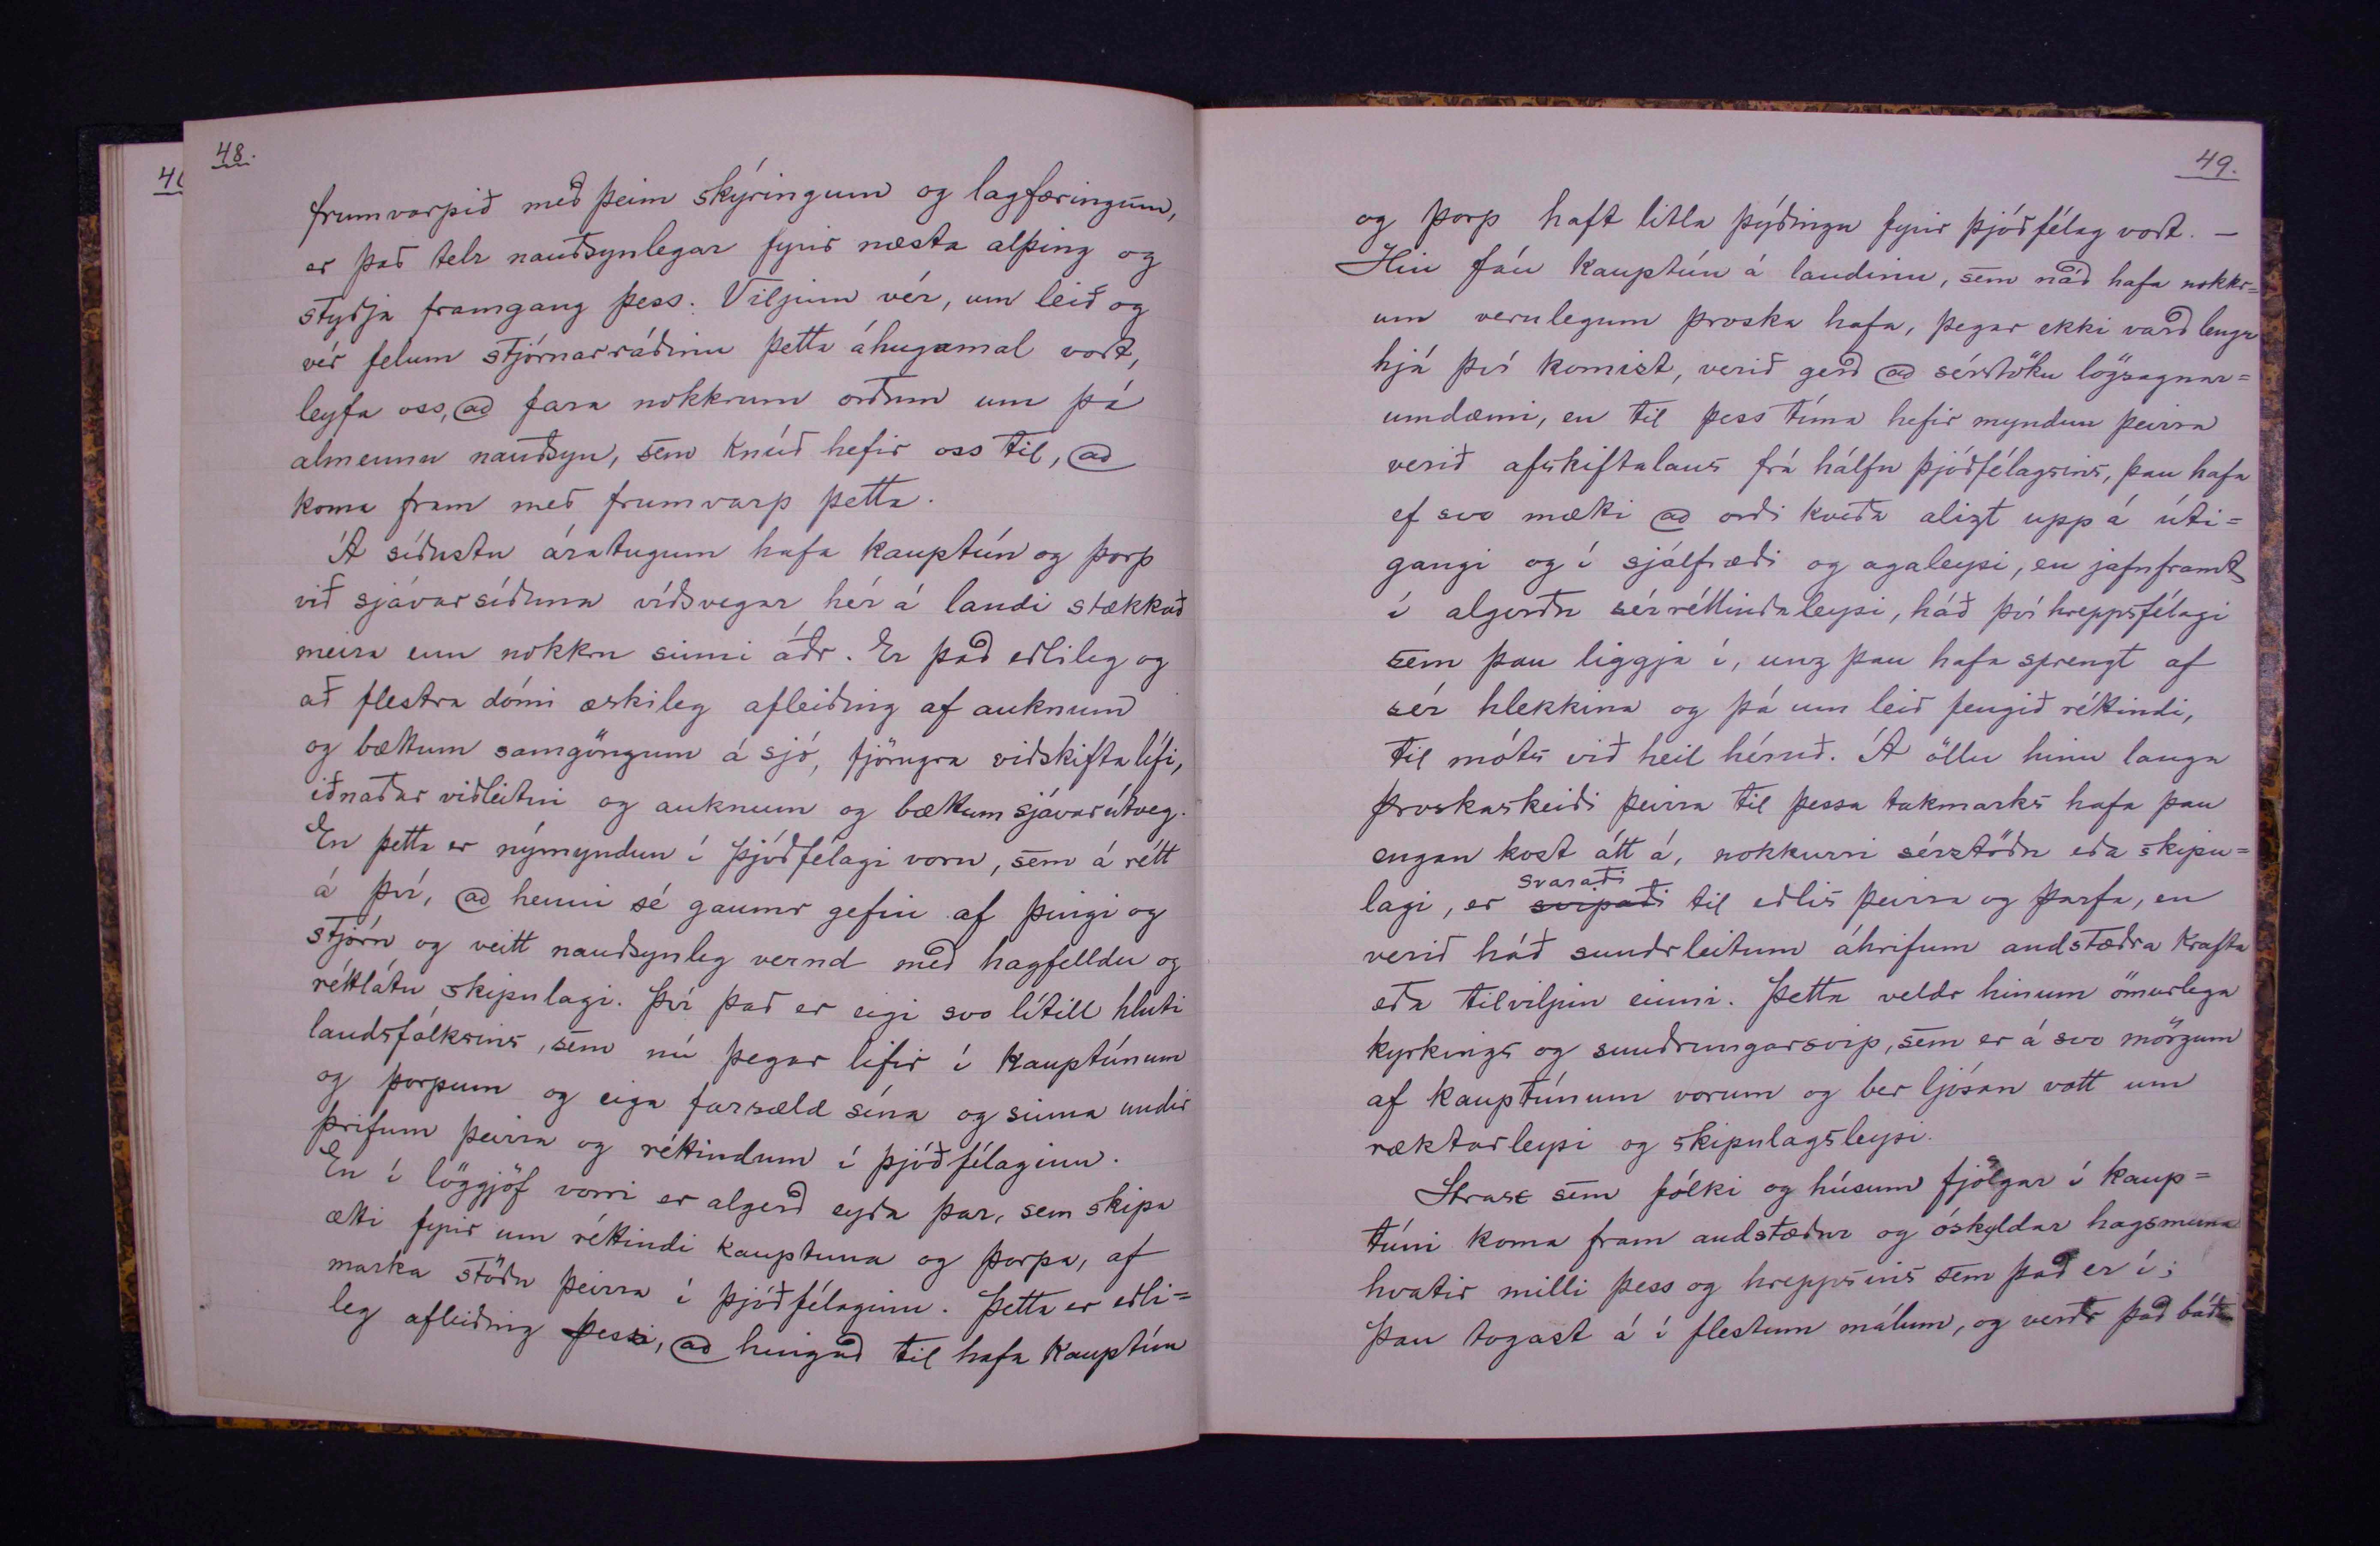 48.
frumvarpið með þeim skýringum og lagfæringum,
er það telr nauðsynlegar fyrir næsta alþing og
styðja framgang þess. Viljum vér, um leið og
vér felum stjórnarráðinu þetta áhugamal vort,
leyfa oss, að fara nokkrum orðum um þá
almennu nauðsyn, sem knúð hefir oss til, að
koma fram með frumvarp þetta.
Á síðustu áratugum hafa kauptún og þorp
við sjávarsíðuna víðsvegar hér á landi stækkað
meira enn nokkru sinni áðr. Er það eðlileg og
að flestra dómi æskileg afleiðing af auknum
og bættum samgöngum á sjó, fjörugra viðskiftalífi,
iðnaðar viðleitni og auknum og bættum sjávarútveg.
En þetta er nýmyndun í þjóðfélagi voru, sem á rétt
á því, að henni sé gaumr gefin af þingi og
stjórn og veitt nauðsynleg vernd með hagfelldu og
réttlátu skipulagi. Því það er eigi svo lítill hluti
landsfólksins, sem nú þegar lifir í kauptúnum
og þorpum og eiga farsæld sína og sinna undir
þrifum þeirra og réttindum í þjóðfélaginu.
En í löggjöf vorri er algerð eyða þar, sem skipa
ætti fyrir um réttindi kauptuna og þorpa, af
marka stöðu þeirra í þjóðfélaginu. Þetta er eðli=
leg afleiðing þessi, að hingað til hafa kauptún
49.
og þorp haft litla þýðingu fyrir þjóðfélag vort. –
Hin fáu kauptún á landinu, sem náð hafa nokkr=
um verulegum þroska hafa, þegar ekki varð lengr
hjá því komist, verið gerð að sérstöku lögsagnar=
umdæmi, en til þess tíma hefir myndun þeirra
verið afskiftalaus frá hálfu þjóðfélagsins, þau hafa
ef svo mætti að orði kveða alizt upp á úti=
gangi og í sjálfræði og agaleysi, en jafnframt
í algerðu sérréttindaleysi, háð því hreppsfélagi
sem þau liggja í, unz þau hafa sprengt af
sér hlekkina og þá um leið fengið réttindi,
til móts við heil héruð. Á öllu hinu langa
þroskaskeiði þeirra til þessa takmarks hafa þau
engan kost átt á, nokkurri sérstöðu eða skipu=
lagi, er svipaði svaraði til eðlis þeirra og þarfa, en
verið háð sundrleitum áhrifum andstæðra krafta
eða tilviljun einni. Þetta veldr hinum ömurlega
kyrkings og sundrungarsvip, sem er á svo mörgum
af kauptúnum vorum og ber ljósan vott um
ræktarleysi og skipulagsleysi.
Strax sem fólki og húsum fjölgar í kaup=
túni koma fram andstæður og óskyldar hagsmuna
hvatir milli þess og hreppsins sem það er í;
þau togast á í flestum málum, og verðr það báðu